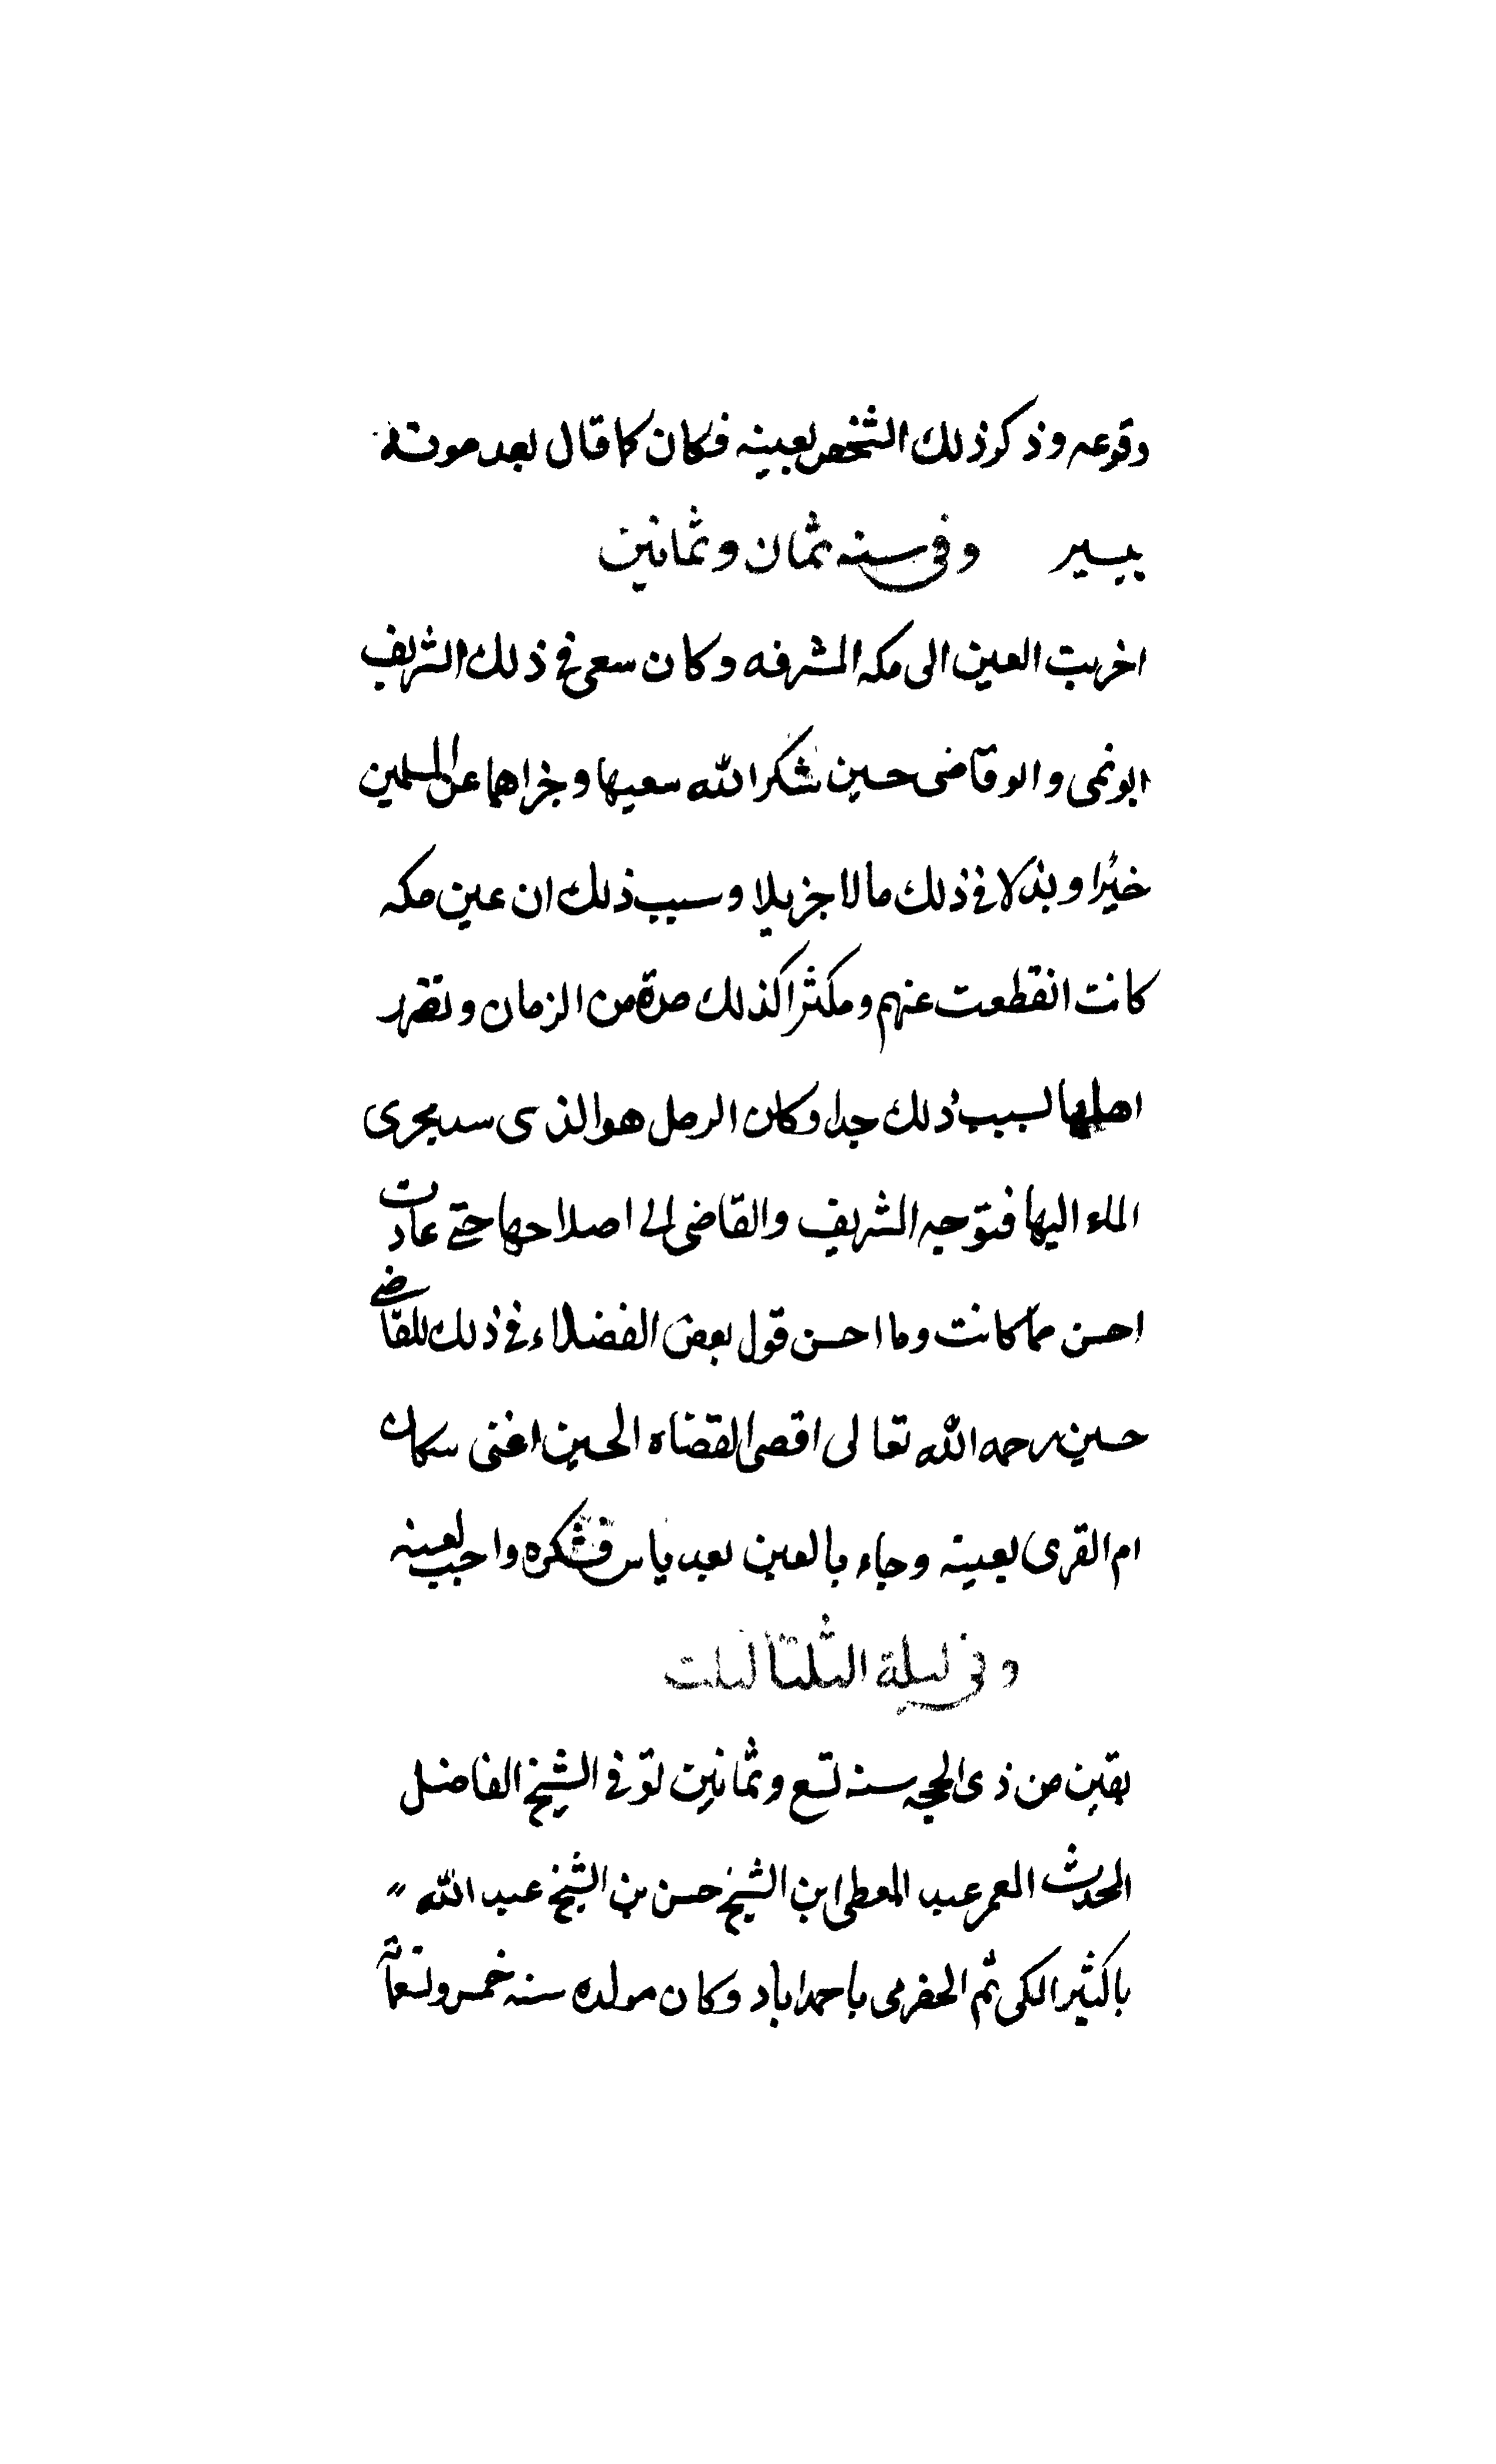 وقوعه وذكر ذلك الشخص بعينه فكان كما قال بعد موته
بيسير وفي سنه ثمان وثمانين
اخربت العين الى مكه المشرفه وكان سعى في ذلك الشريف
ابو نمى والو قاضى حسين شكر الله سعيها وجزاهما عن المسلمين
خيرا وبذلا في ذلك مالا جزيلا وسبب ذلك ان عين مكه
كانت انقطعت عنهم ومكثرا كذلك مدة من الزمان وتضرر
اهلها لسبب ذلك جدا وكان الرمل هو الذى سد مجرى
الماء اليها فتوجه الشريف والقاضى الى اصلاحها حتى عادت
احسن مما كانت وما احسن قول بعض الفضلاء في ذلك للقاضي
حسين رحمه الله تعالى اقصى القضاه الحسين اغنى سكان
ام القرى بعينه وجاء بالعين بعد ياس فشكره واجب لعينه
وفي ليلة الثلثا لثلث
بقين من ذى الحجه سنه تسع وثمانين توفي الشيخ الفاضل
المحدث المعمر عبد المعطى ابن الشيخ حسن بن الشيخ عبد الله
باكثير المكى ثم الحضرمى باحمداباد وكان مولده سنه خمس وتسعمائة